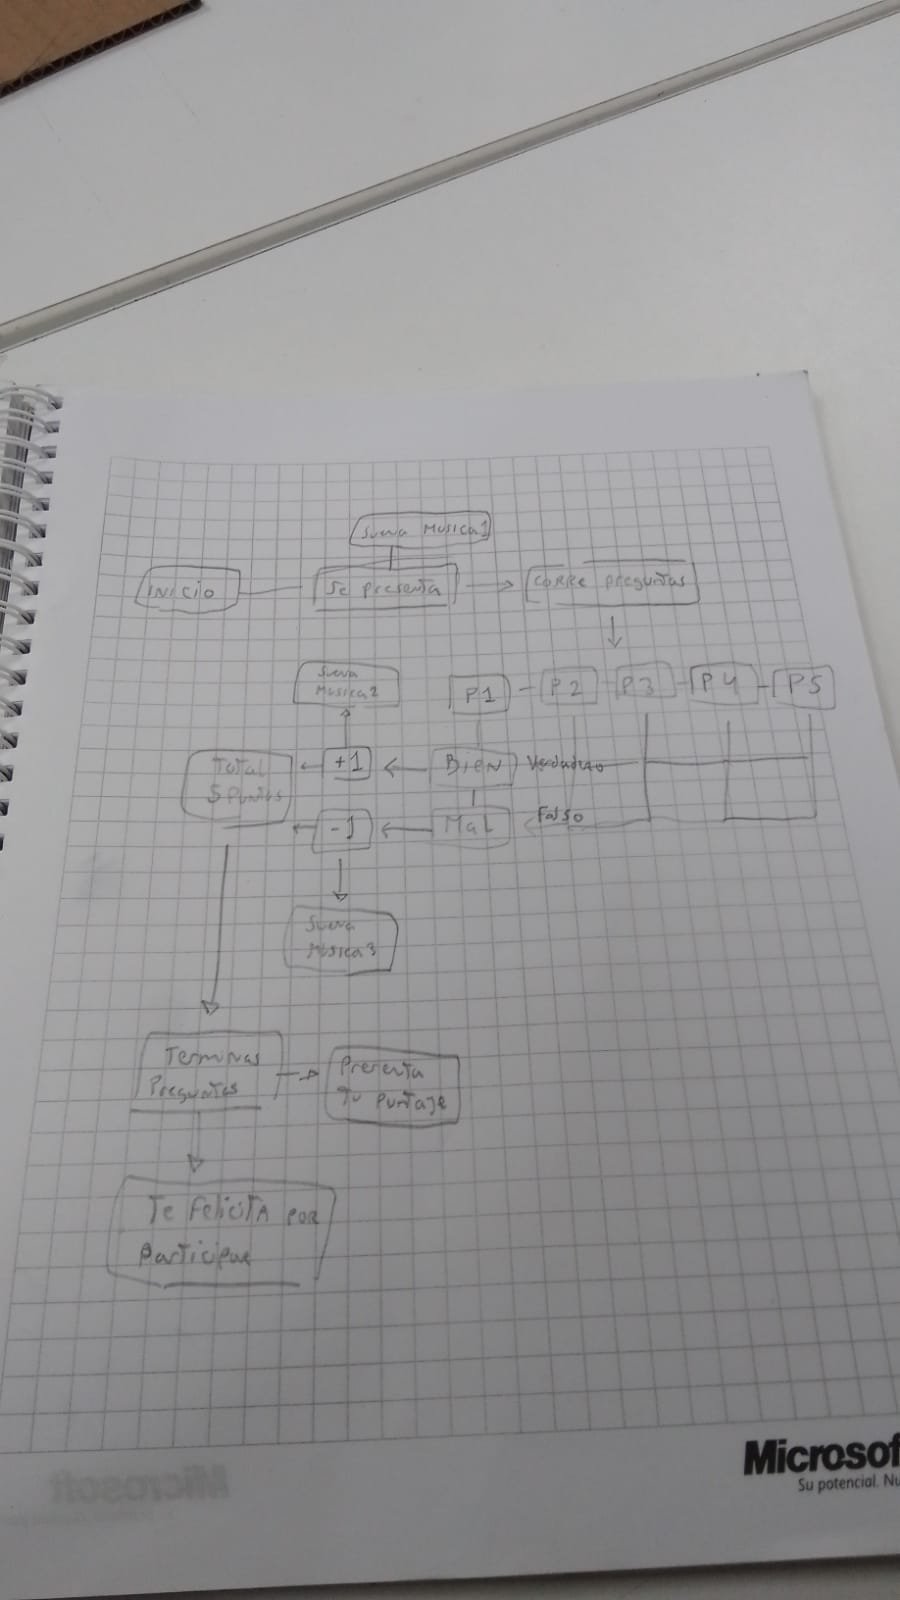 Suena Musica1
INICIO
Se presenta
CORRE preguntas
Suena
Musica2
P1
P2
P3
P4
P5
Total
5 Puntos
+1
Bien
Verdadero
-1
Mal
Falso
Suena
Musica3
Terminas
Preguntas
Presenta
Tu puntaje
Te Felicita por
participar
Microsof
Su potencial. Nu
Microsoft